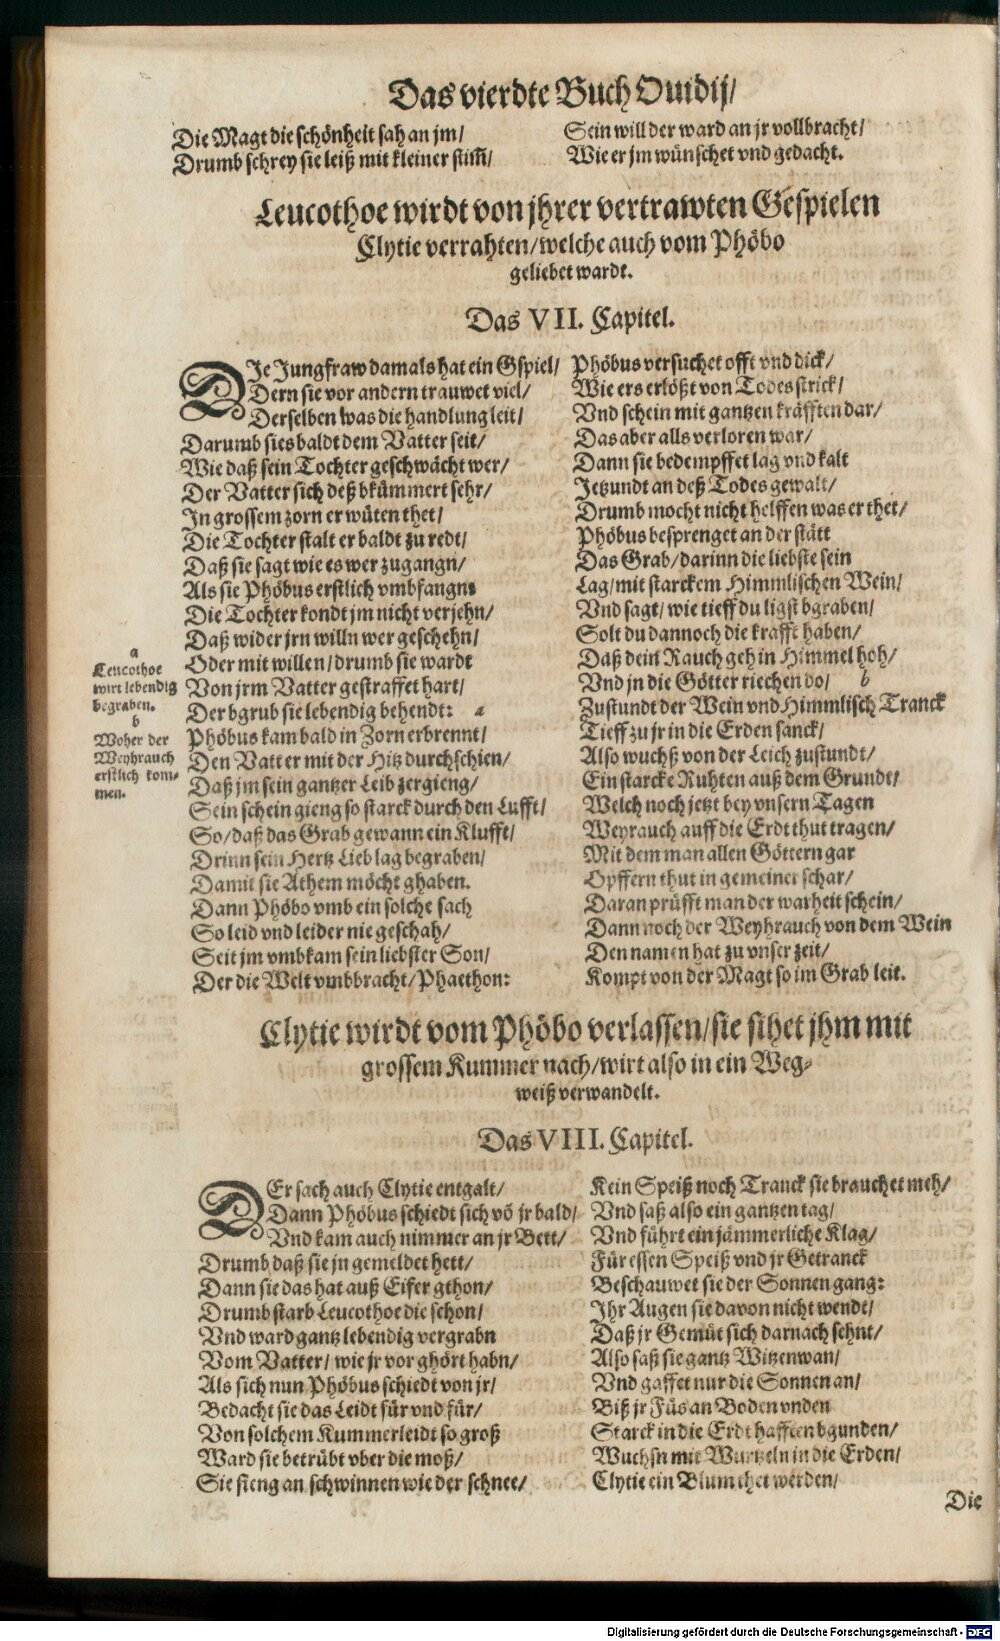 Das vierdte Buch Ouidij/
Die Magt die schönheit sah an jm/
Drumb schrey sie leiß mit kleiner stim̅/
Sein will der ward an jr vollbracht/
Wie er jm wünschet vnd gedacht.
Leucothoe wirdt von jhrer vertrawten Gespielen
Clytie verrahten/welche auch vom Phöbo
geliebet wardt.
Das VII. Capitel.
DIe Jungfraw damals hat ein Gspiel/
Dern sie vor andern trauwet viel/
Derselben was die handlung leit/
Darumb sies baldt dem Vatter seit/
Wie daß sein Tochter geschwächt wer/
Der Vatter sich deß bkümmert sehr/
In grossem zorn er wüten thet/
Die Tochter stalt er baldt zu redt/
Daß sie sagt wie es wer zugangn/
Als sie Phöbus erstlich vmbfangn
Die Tochter kondt jm nicht verjehn/
Daß wider jrn willn wer geschehn/
Oder mit willen/drumb sie wardt
Von jrm Vatter gestraffet hart/
Der bgrub sie lebendig behendt: a
Phöbus kam bald in Zorn erbrennt/
Den Vatter mit der Hitz durchschien/
Daß jm sein gantzer Leib zergieng/
Sein schein gieng so starck durch den Lufft/
So/daß das Grab gewann ein Klufft/
Drinn sein Hertz Lieb lag begraben/
Damit sie Athem möcht ghaben.
Dann Phöbo vmb ein solche sach
So leid vnd leider nie geschah/
Seit jm vmbkam sein liebster Son/
Der die Welt vmbbracht/Phaethon:
a
Leucothoe
wirt lebendig
begraben.
b
Woher der
Weyhrauch
erstlich kom-
men.
Phöbus versuchet offt vnd dick/
Wie ers erlößt von Todes strick/
Vnd schein mit gantzen kräfften dar/
Das aber alls verloren war/
Dann sie bedempffet lag vnd kalt
Jetzundt an deß Todes gewalt/
Drumb mocht nicht helffen was er thet/
Phöbus besprenget an der stätt
Das Grab/darinn die liebste sein
Lag/mit starckem Himmlischen Wein/
Vnd sagt/wie tieff du ligst bgraben/
Solt du dannoch die krafft haben/
Daß dein Rauch geh in Himmel hoh/
Vnd jn die Götter riechen do/ b
Zustundt der Wein vnd Himmlisch Tranck
Tieff zu jr in die Erden sanck/
Also wuchß von der Leich zustundt/
Ein starcke Ruhten auß dem Grundt/
Welch noch jetzt bey vnsern Tagen
Weyrauch auff die Erdt thut tragen/
Mit dem man allen Göttern gar
Opffern thut in gemeiner schar/
Daran prüfft man der warheit schein/
Dann noch der Weyhrauch von dem Wein
Den namen hat zu vnser zeit/
Kompt von der Magt so im Grab leit.
Clytie wirdt vom Phöbo verlassen/sie sihet jhm mit
grossem Kummer nach/wirt also in ein Weg-
weiß verwandelt.
Das VIII. Capitel.
DEr sach auch Clytie entgalt/
Dann Phöbus schiedt sich vō jr bald/
Vnd kam auch nimmer an jr Bett/
Drumb daß sie jn gemeldet hett/
Dann sie das hat auß Eifer gthon/
Drumb starb Leucothoe die schon/
Vnd ward gantz lebendig vergrabn
Vom Vatter/wie jr vor ghört habn/
Als sich nun Phöbus schiedt von jr/
Bedacht sie das Leidt für vnd für/
Von solchem Kummer leidt so groß
Ward sie betrübt vber die moß/
Sie fieng an schwinnen wie der schnee/
Kein Speiß noch Tranck sie brauchet meh/
Vnd saß also ein gantzen tag/
Vnd führt ein jämmerliche Klag/
Für essen Speiß vnd jr Getranck
Beschauwet sie der Sonnen gang:
Ihr Augen sie davon nicht wendt/
Daß jr Gemüt sich darnach sehnt/
Also saß sie gantz Witzen wan/
Vnd gaffet nur die Sonnen an/
Biß jr Füs an Boden vnden
Starck in die Erdt hafften bgunden/
Wuchsn mit Wurtzeln in die Erden/
Clytie ein Blum thet werden/
Die
Digitalisierung gefördert durch die Deutsche Forschungsgemeinschaft - DFG